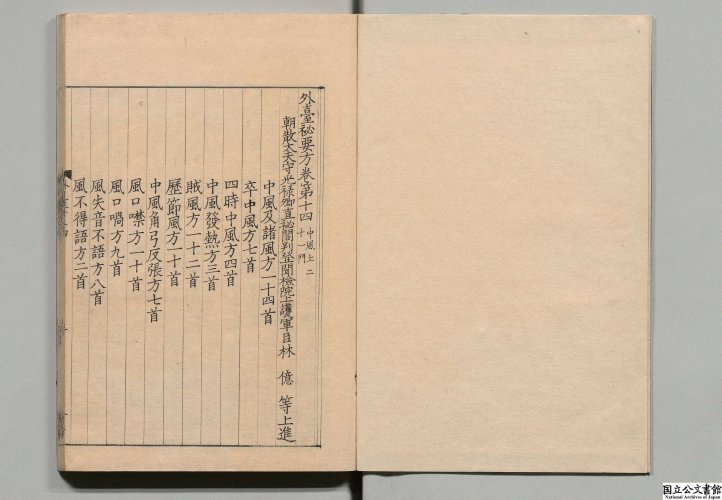 外臺祕要方卷第十四 中風上二十一門
朝散大夫守光祿卿直祕閣判登聞檢院上護軍臣林 億 等上進
中風及諸風方一十四首
卒中風方七首
四時中風方四首
中風發熱方三首
賊風方一十二首
歷節風方一十首
中風角弓反張方七首
風口噤方一十首
風口喎方九首
風失音不語方八首
風不得語方二首
国立公文書館
National Archives of Japan